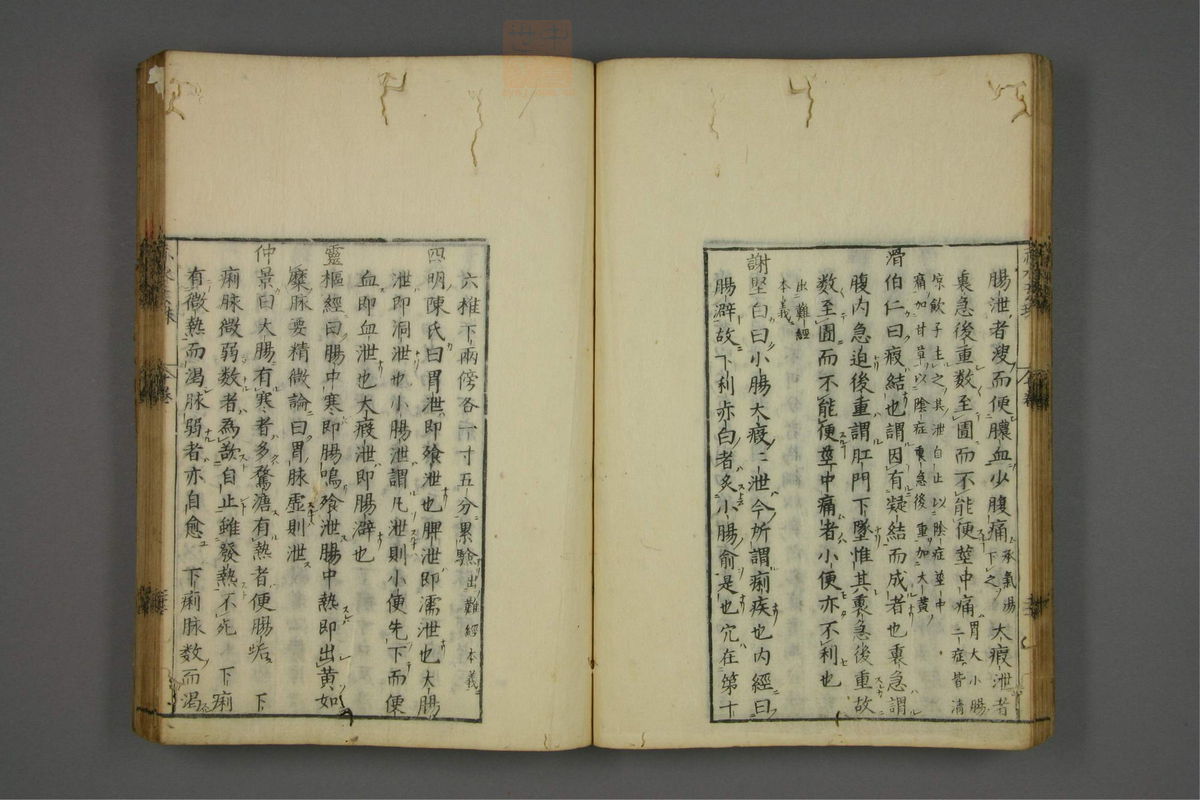 腸泄者溲而便膿血少腹痛承氣湯下之大瘕泄者
裏急後重数至圊而不能便莖中痛胃大小腸二症皆清
凉飲子主之其泄自止以陰症莖中痛加甘草以陰症裏急後重加大黄
滑伯仁曰瘕結也謂因有凝結而成者也裏急謂
腹内急迫後重謂肛門下墜惟其裏急後重故
数至圊而不能便莖中痛者小便亦不利也
出難經本義
謝堅白曰小腸大瘕二泄今所謂痢疾也内經曰
腸澼故下利赤白者炙小腸俞是也穴在第十
六椎下兩傍各一寸五分累驗出難經本義
四明陳氏曰胃泄即飱泄也脾泄即濡泄也大腸
泄即洞泄也小腸泄謂凡泄則小便先下而便
血即血泄也大瘕泄即腸澼也
靈樞經曰腸中寒即腸鳴飱泄腸中熱即出黄如
糜脉要精微論曰胃脉虚則泄
仲景曰大腸有寒者多鶩溏有熱者便腸垢　下
痢脉微弱数者為欲自止雖發熱不死　下痢
有微熱而渇脉弱者亦自愈　下痢脉数而渇